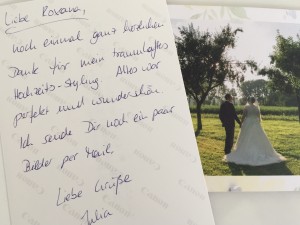 Liebe Roxana,
noch einmal ganz herzlichen
Dank für mein traumhaftes
Hochzeits-Styling. Alles war
perfekt und wunderschön
Ich sende Dir noch ein paar
Bilder per Mail.
Liebe Grüße
Julia